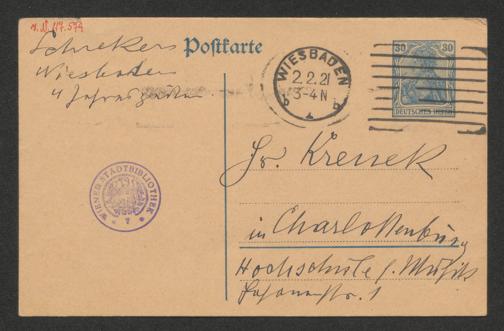 H.I.N. 117.574
Schrekers
Wiesbaden
4 Jahreszeiten
Postkarte
WIESBADEN
2.2.21
3-4 N
b b
30 30
DEUTSCHES REICH
WIENER STADTBIBLIOTHEK
Hr. Krenek
in Charlottenburg
Hochschule f. Musik
Fasanenstr. 1